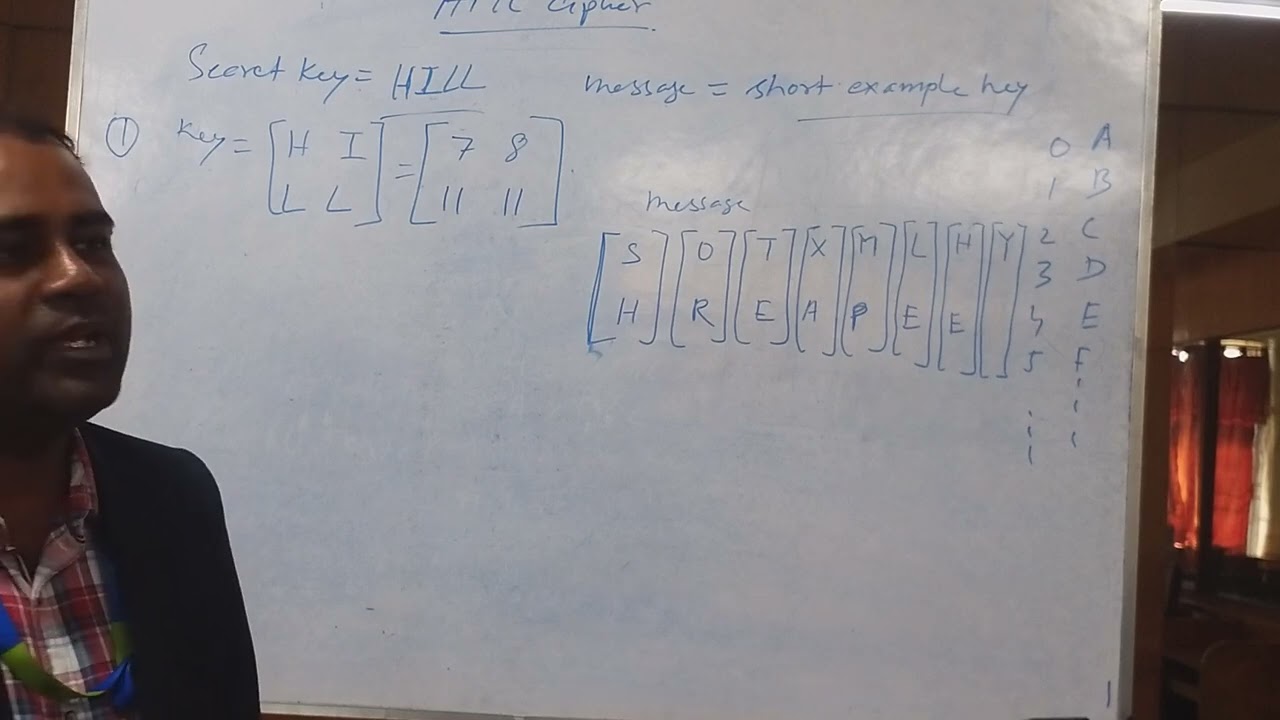 Hill Cipher
Secret Key = HILL
message = short example hey
① Key = [H I] = [7 8]
[L L] [11 11]
message
[S] [O] [T] [X] [M] [L] [H] [Y]
[H] [R] [E] [A] [P] [E] [E] [ ]
0 A
1 B
2 C
3 D
4 E
5 F